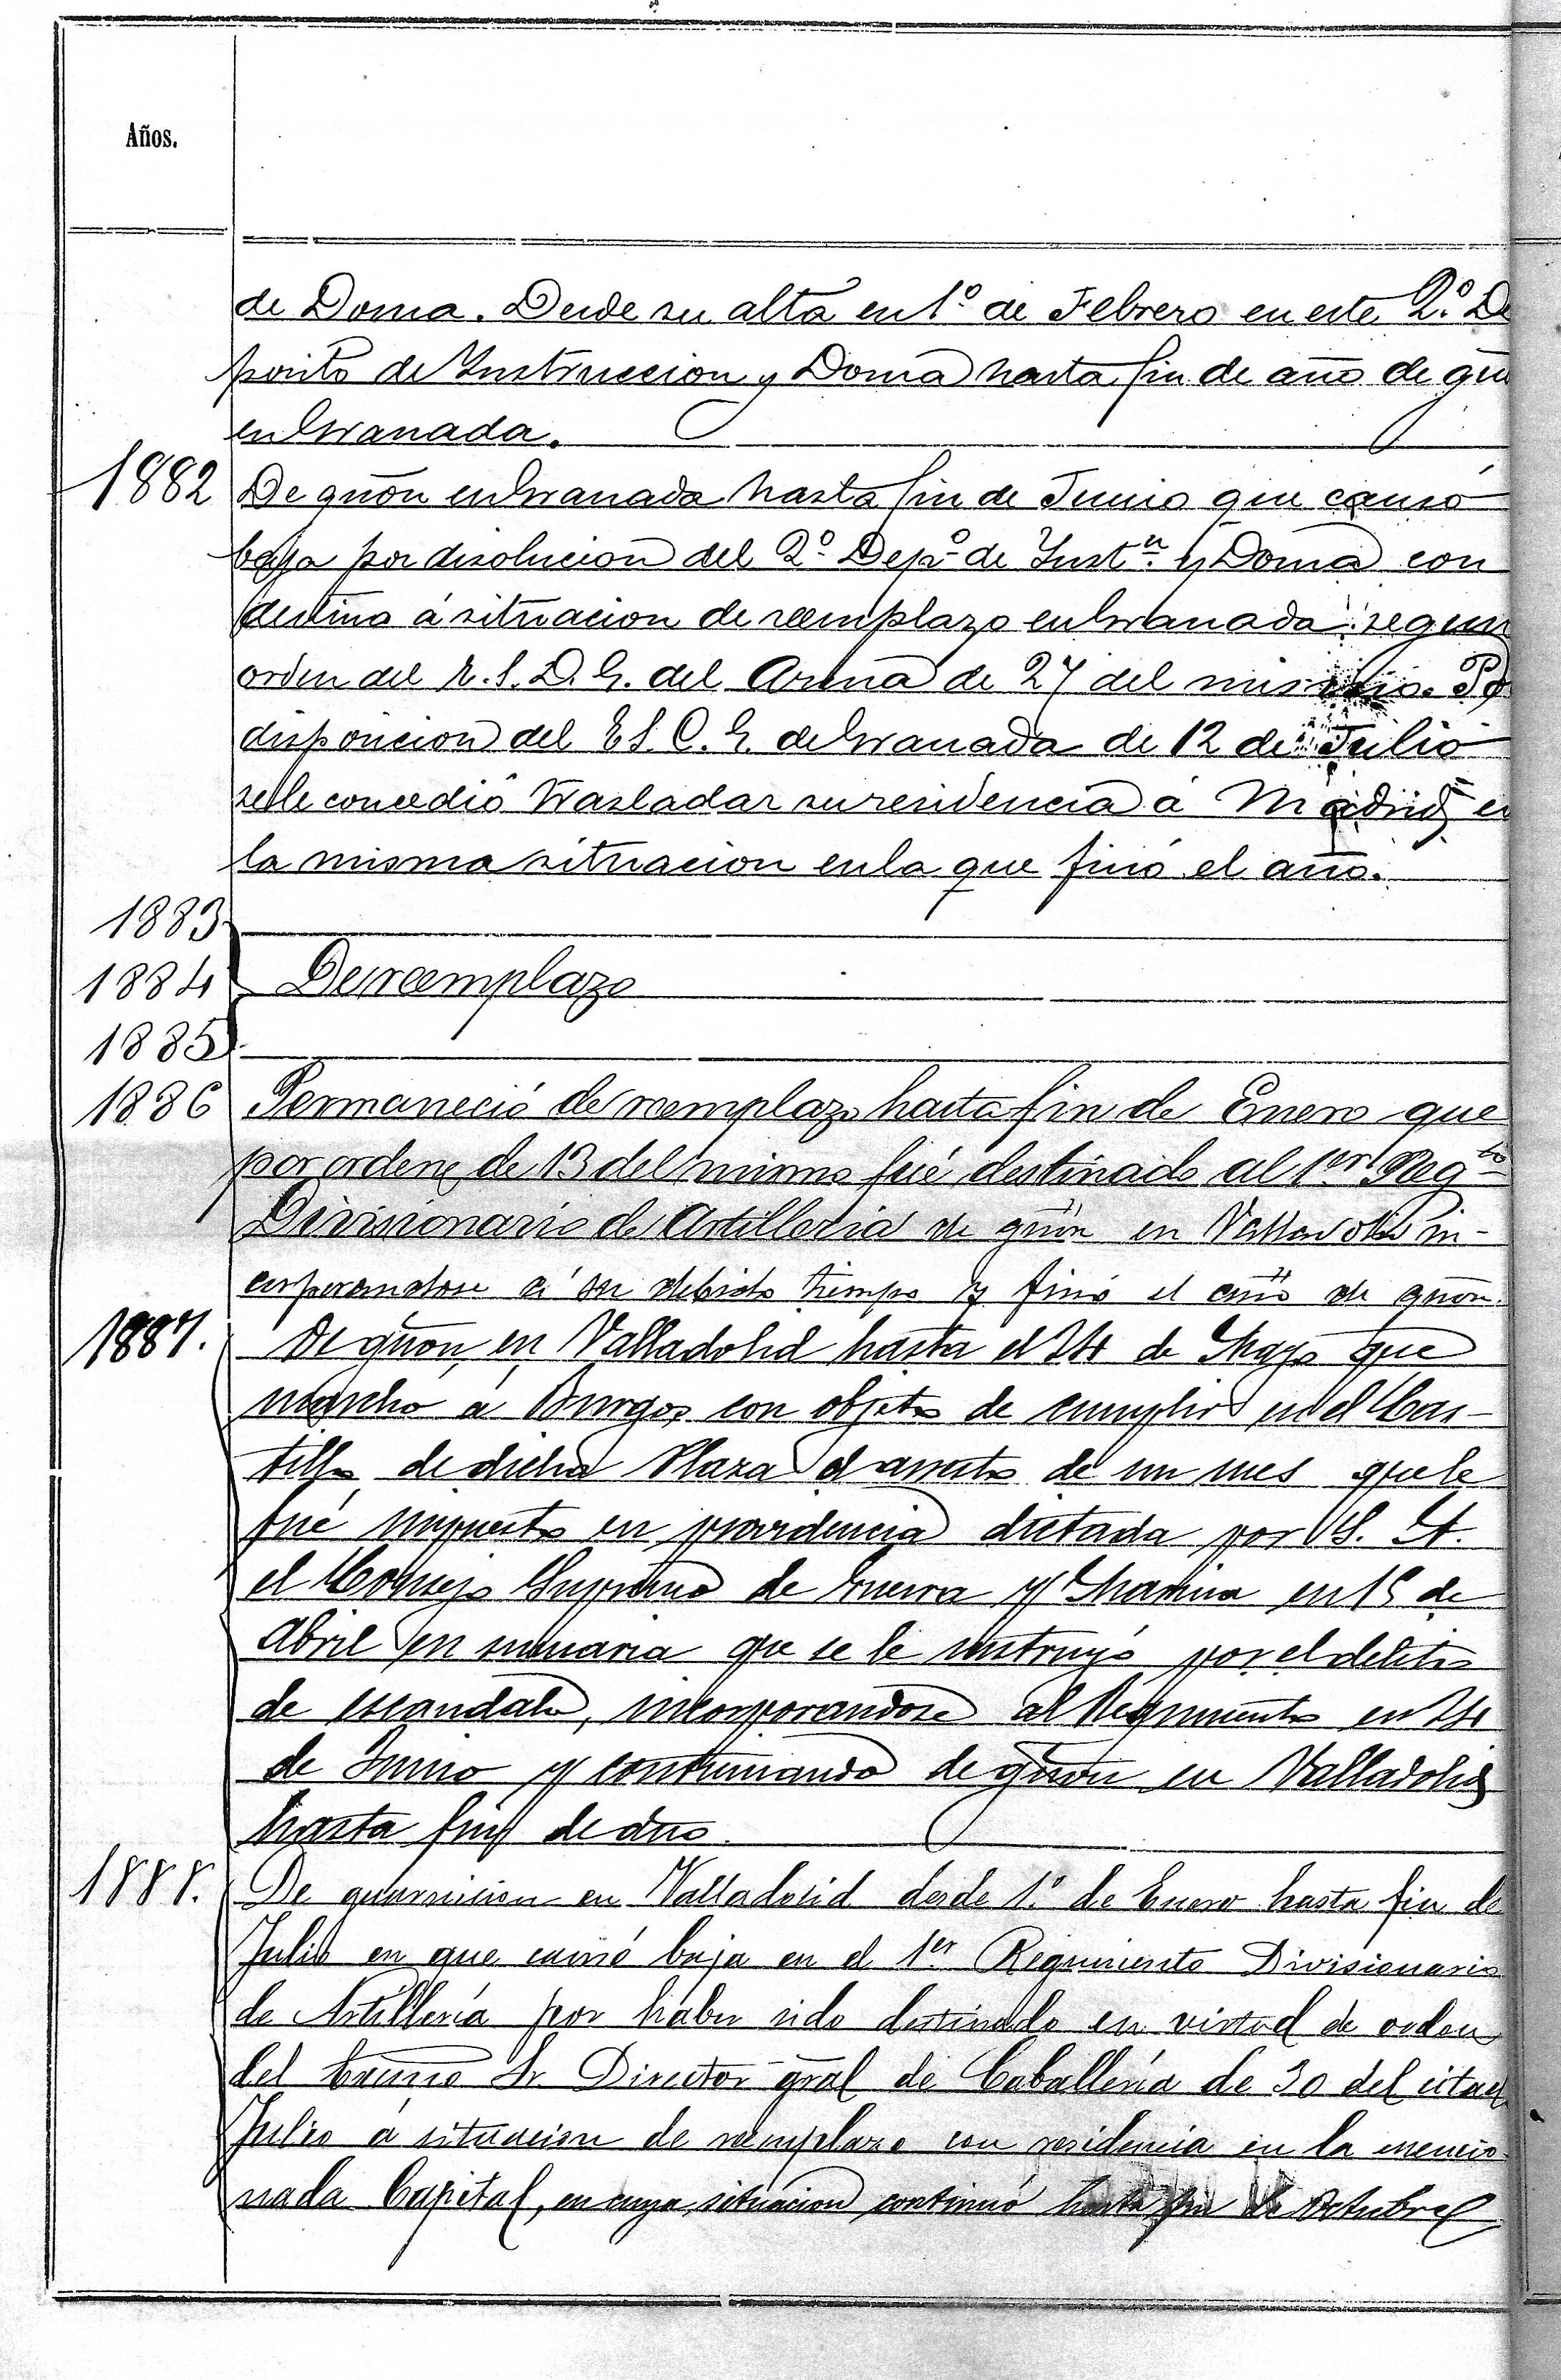 Años.
de Doma. Desde su alta en 1º de Febrero en este 2º De
posito de Instruccion y Doma hasta fin de año de gñ
en Granada.
1882 De gñon en Granada hasta fin de Junio que causó
baja por disolucion del 2º Depº de Instn. y Doma con
destino á situacion de reemplazo en Granada segun
orden del E. S. D. G. del Arma de 27 del mismo. Po
disposicion del E S. C. G. de Granada de 12 de Julio
se le concedió trasladar su residencia á Madrid en
la misma situacion en la que finó el año.
1883
1884 De reemplazo
1885
1886 Permaneció de reemplazo hasta fin de Enero que
por orden de 13 del mismo fué destinado al 1er Regto
Divisionario de Artilleria de gñon en Valladolid in-
corporandose á su debido tiempo y finó el año de gñon.
1887. De gñon en Valladolid hasta el 24 de Mayo que
marchó á Burgos con objeto de cumplir en el Cas-
tillo de dicha Plaza el arresto de un mes que le
fué impuesto en providencia dictada por S. A.
el Consejo Supremo de Guerra y Marina en 15 de
Abril en sumaria que se le instruyó por el delito
de escandalo, incorporandose al Regimiento en 24
de Junio y continuando de gñon en Valladolid
hasta fin de año.
1888. De guarnicion en Valladolid desde 1.º de Enero hasta fin de
Julio en que causó baja en el 1er Regimiento Divisionario
de Artillería por haber sido destinado en virtud de orden
del Excmo Sr. Director gral de Caballería de 30 del citad
Julio á situacion de reemplazo con residencia en la mencio-
nada Capital, en cuya situacion continuó hasta fin de Octubre